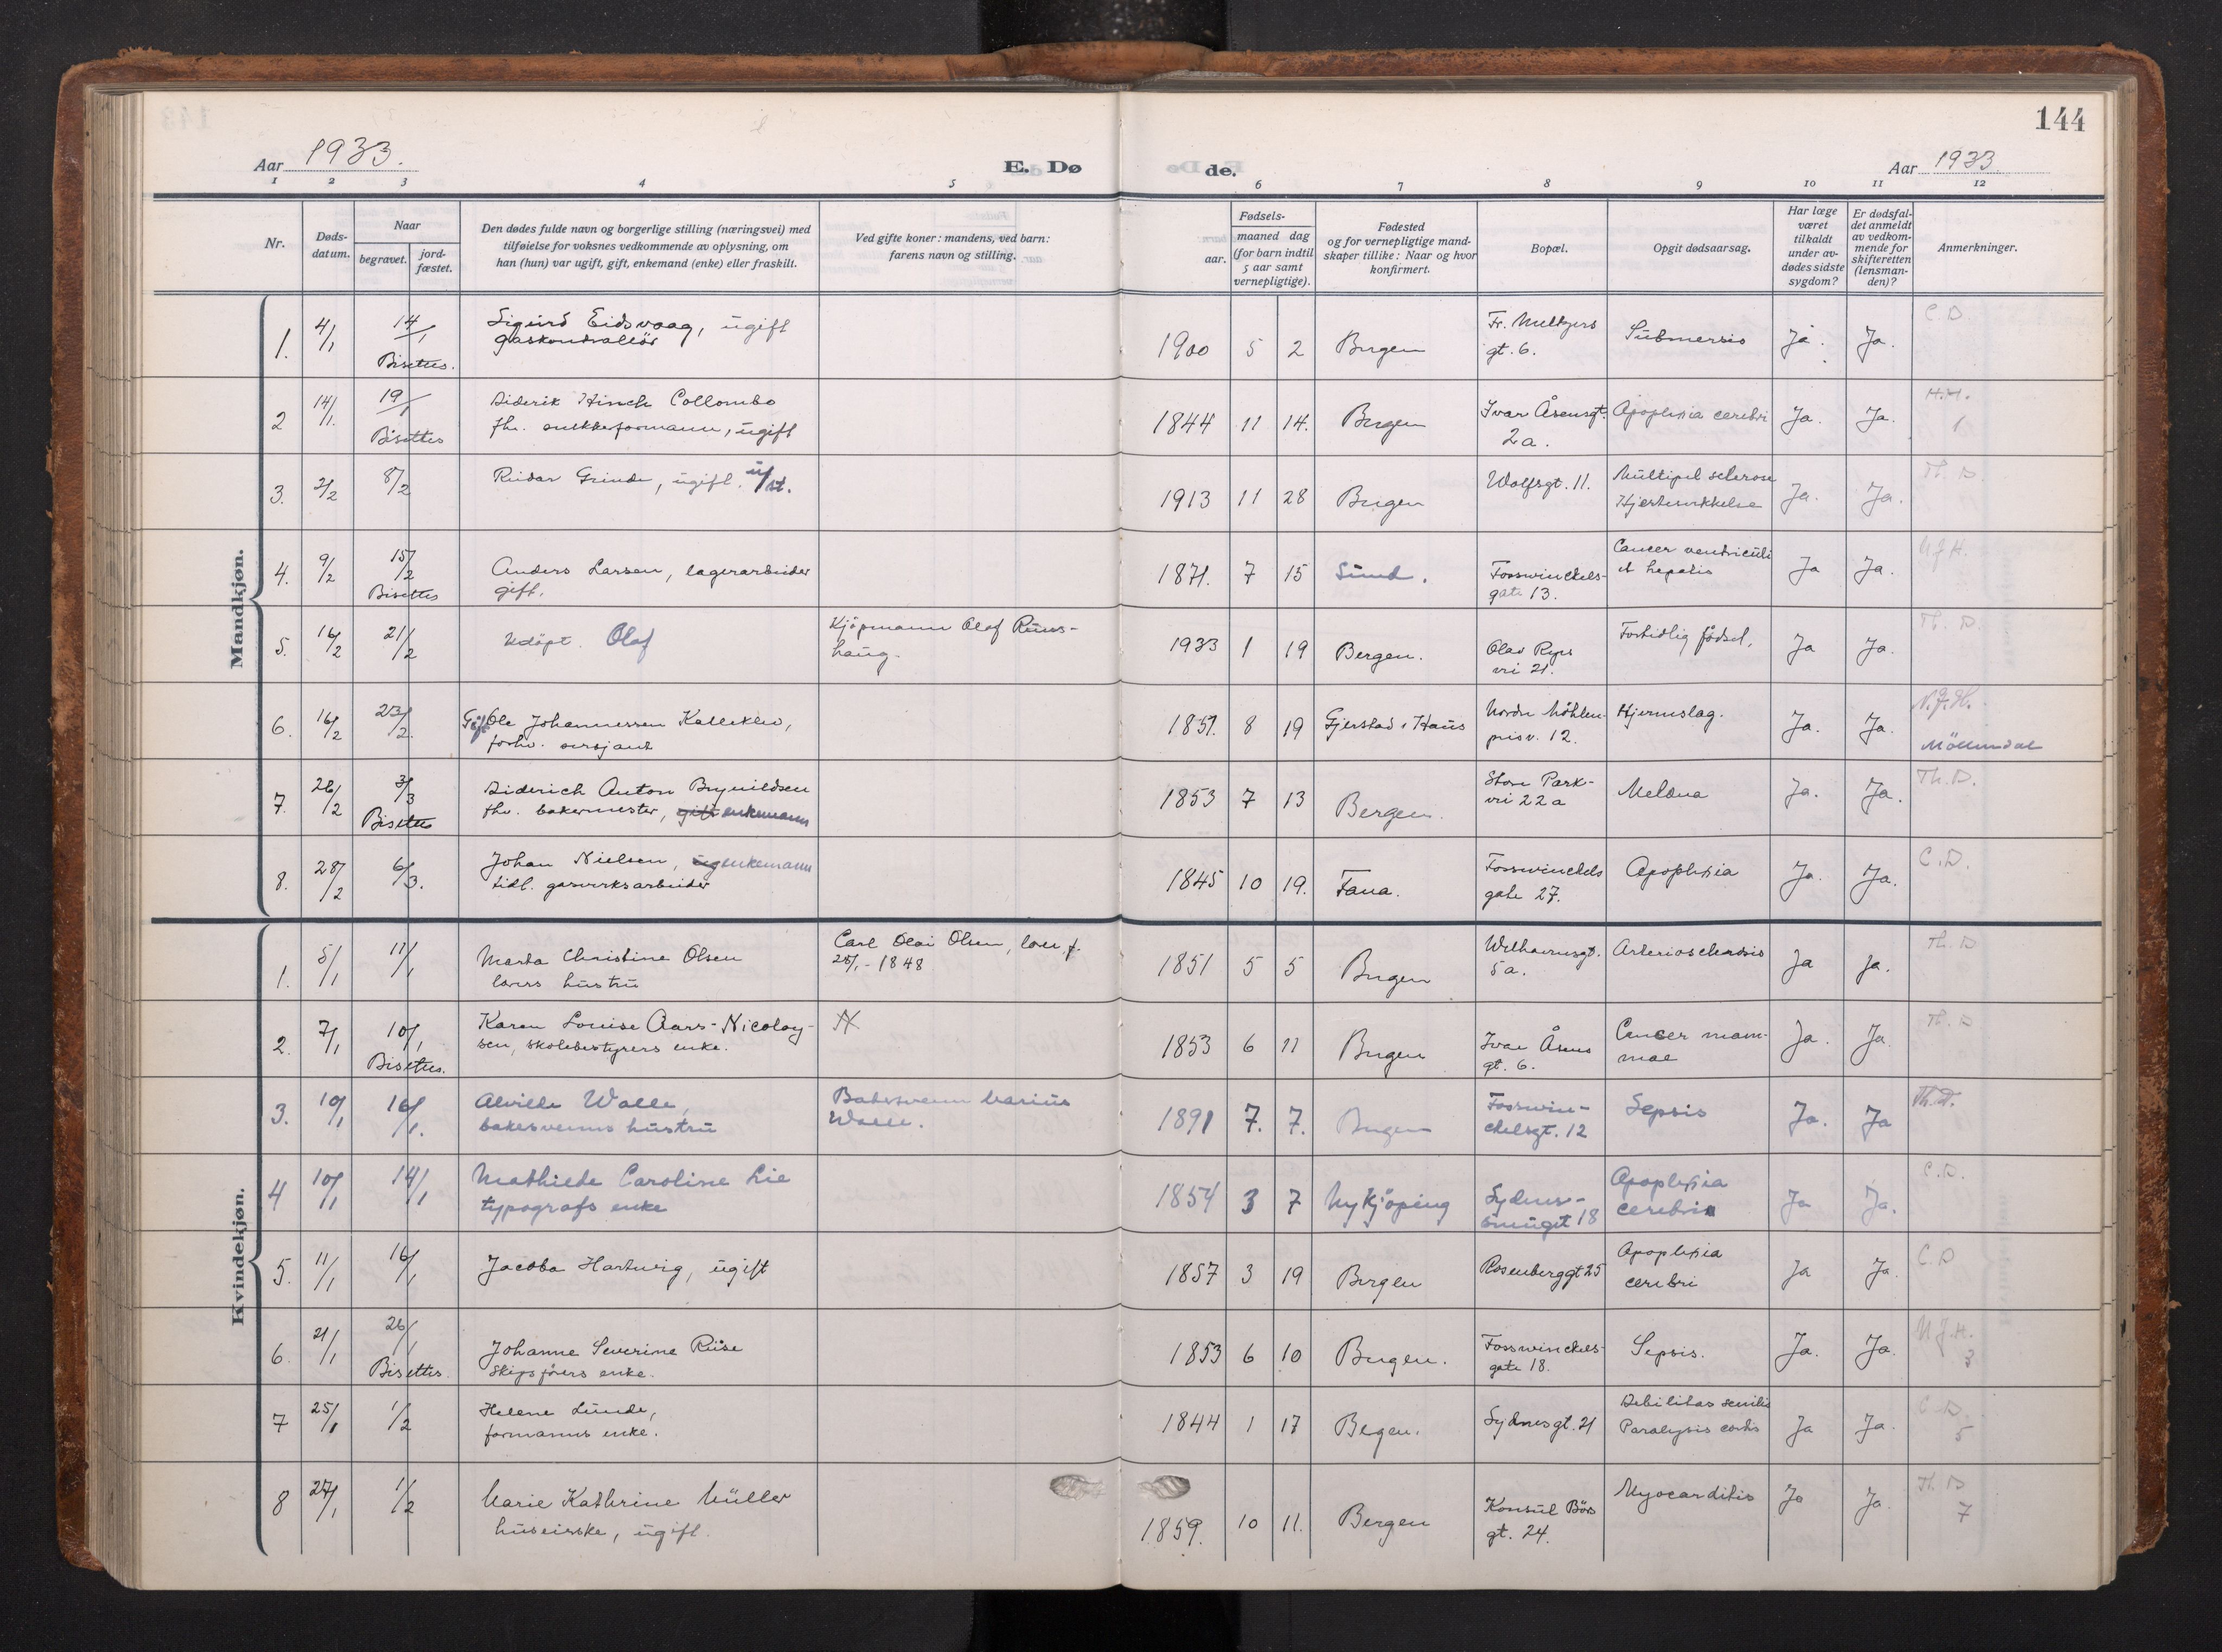 144
Aar 1933.
E. Dø
de.
Aar 1933
1 2 3 4 5 6 7 8 9 10 11 12
Nr.
Døds-
datum.
Naar
begravet.
jord-
fæstet.
Den dødes fulde navn og borgerlige stilling (næringsvei) med
tilføielse for voksnes vedkommende av oplysning, om
han (hun) var ugift, gift, enkemand (enke) eller fraskilt.
Ved gifte koner: mandens, ved barn:
farens navn og stilling.
Fødsels-
aar.
maaned dag
(for barn indtil
5 aar samt
vernepligtige).
Fødested
og for vernepligtige mand-
skaper tillike: Naar og hvor
konfirmert.
Bopæl.
Opgit dødsaarsag.
Har læge
været
tilkaldt
under av-
dødes sidste
sygdom?
Er dødsfal-
det anmeldt
av vedkom-
mende for
skifteretten
(lensman-
den)?
Anmerkninger.
Mandkjøn.
1. 4/1 14/1 Bisettes.
Sigurd Eidsvaag, ugift
gaskontrollör
1900 5 2 Bergen
Fr. Meltzers
gt. 6.
Submersio Ja. Ja. C.D.
2 14/1. 19/1 Bisettes
Diderik Hinch Collombo
fhv. snekkerformann, ugift
1844 11 14. Bergen
Ivar Åsensgt.
2a.
Apoplexia cerebri Ja. Ja. H.H.
1
3. 2/2 8/2
Reidar Grinde, ugift. u/st.
1913 11 28 Bergen Wolffsgt. 11.
Multipel sclerose
Hjertesvekkelse
Ja. Ja. Th. D.
4. 9/2 15/2 Bisettes
Anders Larsen, lagerarbeider
gift.
1871. 7 15 Sund.
Fosswinckels-
gate 13.
Cancer ventriculi
et hepatis
Ja Ja.
5. 16/2 21/2
Udöpt. Olaf
Kjöpmann Olaf Rims-
haug.
1933 1 19 Bergen.
Olav Ryes
vei 21.
Fortidlig födsel, Ja Ja. Th. D.
6. 16/2 23/2.
Gift Ole Johannessen Kallekleiv,
forhv. sersjant
1851. 8 19 Gjerstad i Haus
Nordre Möhlen-
prisv. 12.
Hjerneslag. Ja. Ja. N.J.H.
Möllendal
7. 26/2 3/3 Bisettes
Diderich Anton Brynildsen
fhv. bakermester, gift enkemann
1853 7 13 Bergen.
Store Park-
vei 22a
Melæna Ja. Ja. Th. D.
8. 28/2 6/3.
Johan Nielsen, ug enkemann
tidl. gasverksarbeider
1845 10 19. Fana.
Fosswinckels
gate 27.
Apoplexia Ja. Ja. C.D.
Kvindekjøn.
1. 5/1 11/1
Marta Christine Olsen
loers hustru
Carl Olai Olsen, loer f.
25/1 - 1848
1851 5 5 Bergen
Welhavensgt.
5a.
Arteriosclerosis Ja Ja. Th. D
2. 7/1 10/1 Bisettes.
Karen Louise Aars-Nicolay-
sen, skolebestyrers enke.
1853 6 11 Bergen
Ivar Åsens
gt. 6.
Cancer mam-
mae
Ja. Ja. Th. D
3. 10/1 16/1.
Alvilde Walle,
bakersvenns hustru
Bakersvenn Marius
Walle.
1891 7. 7. Bergen
Fosswin-
ckelsgt. 12
Sepsis Ja. Ja Th. D.
4 10/1 14/1
Mathilde Caroline Lie
typografs enke
1854 3 7 Nykjöping
Sydnes-
smuget 18
Apoplexia
cerebri
Ja Ja. C.D.
5. 11/1 16/1
Jacoba Hartwig, ugift
1857 3 19 Bergen Rosenberggt 25
Apoplexia
cerebri
Ja Ja. C.D
6. 21/1 26/1 Bisettes.
Johanne Severine Riise
Skipsförers enke.
1853 6 10 Bergen.
Fosswinckels-
gate 18.
Sepsis. Ja. Ja. N.J.H.
3
7 25/1 1/2
Helene Lunde,
formanns enke.
1844 1 17 Begen. Sydnesgt. 21
Debilitas senilis
Paralysis cordis
Ja Ja. C.D.
5
8 27/1 1/2
Marie Kathrine Müller
huseierske, ugift.
1859. 10 11. Bergen
Konsul Börs
gt. 24.
Myocarditis Ja Ja. Th. D
7